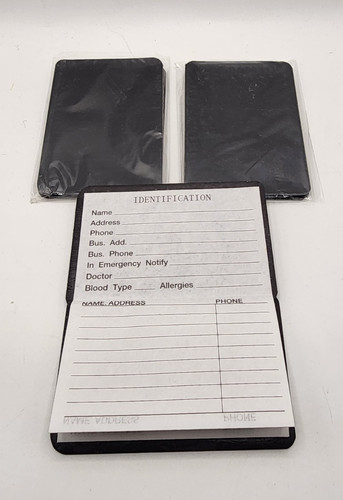 IDENTIFICATION
Name
Address
Phone
Bus. Add.
Bus. Phone
In Emergency Notify
Doctor
Blood Type Allergies
NAME, ADDRESS PHONE